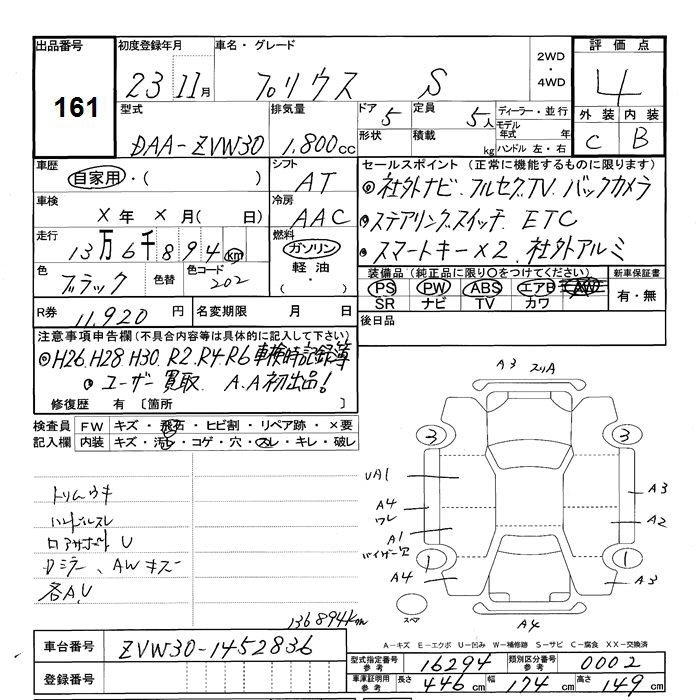 出品番号 初度登録年月 車名・グレード 2WD・4WD 評価点
161 23 11月 プリウス S 4
型式 排気量 ドア 5 定員 5人 ディーラー・並行 外装 内装
DAA-ZVW30 1,800cc 形状 積載 kg モデル年式 年 ハンドル 左・右 C B
車歴 シフト セールスポイント (正常に機能するものに限ります)
自家用・( ) AT ◎社外ナビ・フルセグTV.バックカメラ
車検 冷房
X年 X月( 日) AAC ◎ステアリングスイッチ. ETC
走行 燃料
13万6千894km ガソリン ◎スマートキーX2. 社外アルミ
色 色替 色コード 軽油・
ブラック 202
装備品(純正品に限り○をつけてください) 新車保証書
PS PW ABS エアB AW 有・無
SR ナビ TV カワ
R券 11,920円 名変期限 月 日 後日品
注意事項申告欄(不具合内容等は具体的に記入して下さい)
◎H26.H28.H30.R2.R4.R6車検時記録簿
◎ユーザー買取. A.A初出品!
修復歴 有 〔箇所 〕
検査員記入欄 FW キズ・飛石・ヒビ割・リペア跡・×要
内装 キズ・汚レ・コゲ・穴・スレ・キレ・破レ
トリムウキ
ハンドルスレ
ロアサポートU
Dミラー、AWキズ
各A,U
136894km
A3 スリA
3 3
UA1
A4 ワレ A3
A1 A2
バイザー欠
1 1
A4 A3
スペア A4
A-キズ E-エクボ U-凹み W-補修跡 S-サビ C-腐食 XX-交換済
車台番号 ZVW30-1452836
登録番号
型式指定番号参考 16294 類別区分番号参考 0002
車庫証明用参考 長さ 446cm 幅 174cm 高さ 149cm